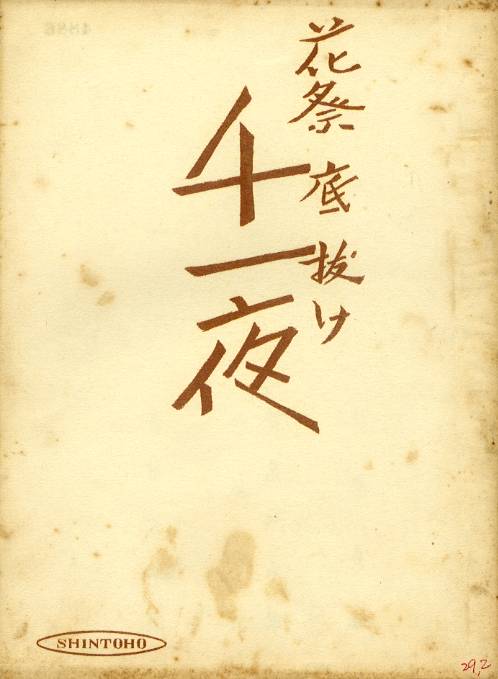 花祭底抜け
千一夜
SHINTOHO
29.2